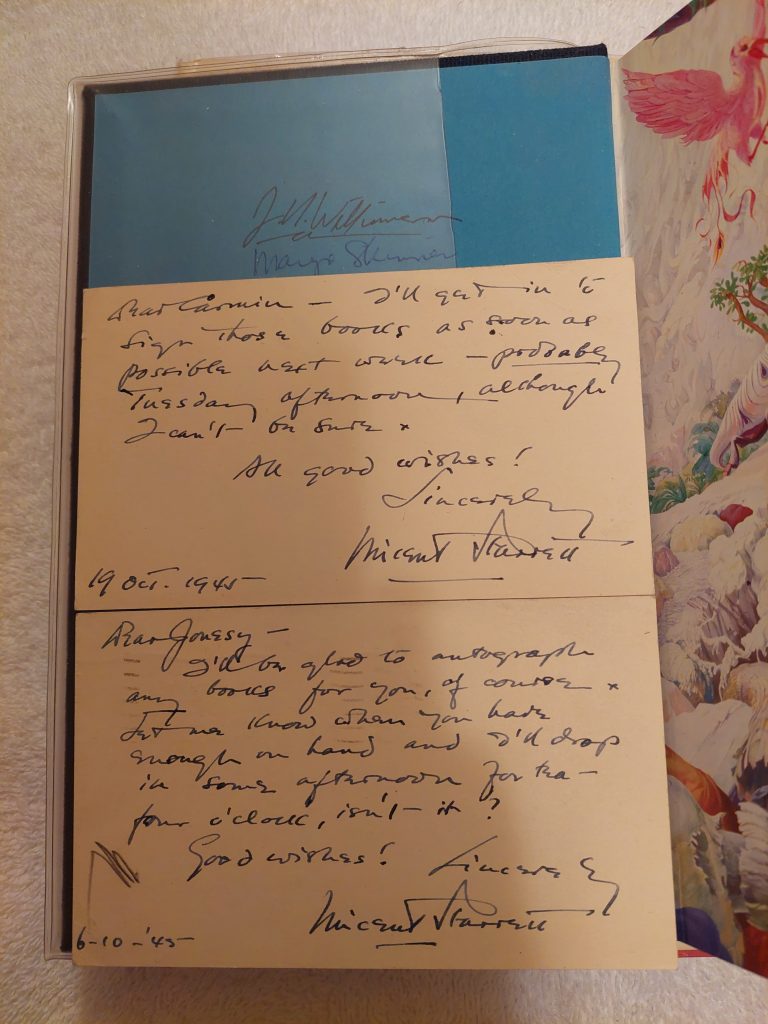 J. N. Williamson
Margo Skinner
Dear Carmin — I'll get in to
sign those books as soon as
possible next week — probably
Tuesday afternoon, although
I can't be sure x
All good wishes!
Sincerely
Vincent Starrett
19 Oct. 1945
Dear Jonesy —
I'll be glad to autograph
any books for you, of course x
Let me know when you have
enough on hand and I'll drop
in some afternoon for tea —
four o'clock, isn't it?
Good wishes! Sincerely
Vincent Starrett
6-10-'45